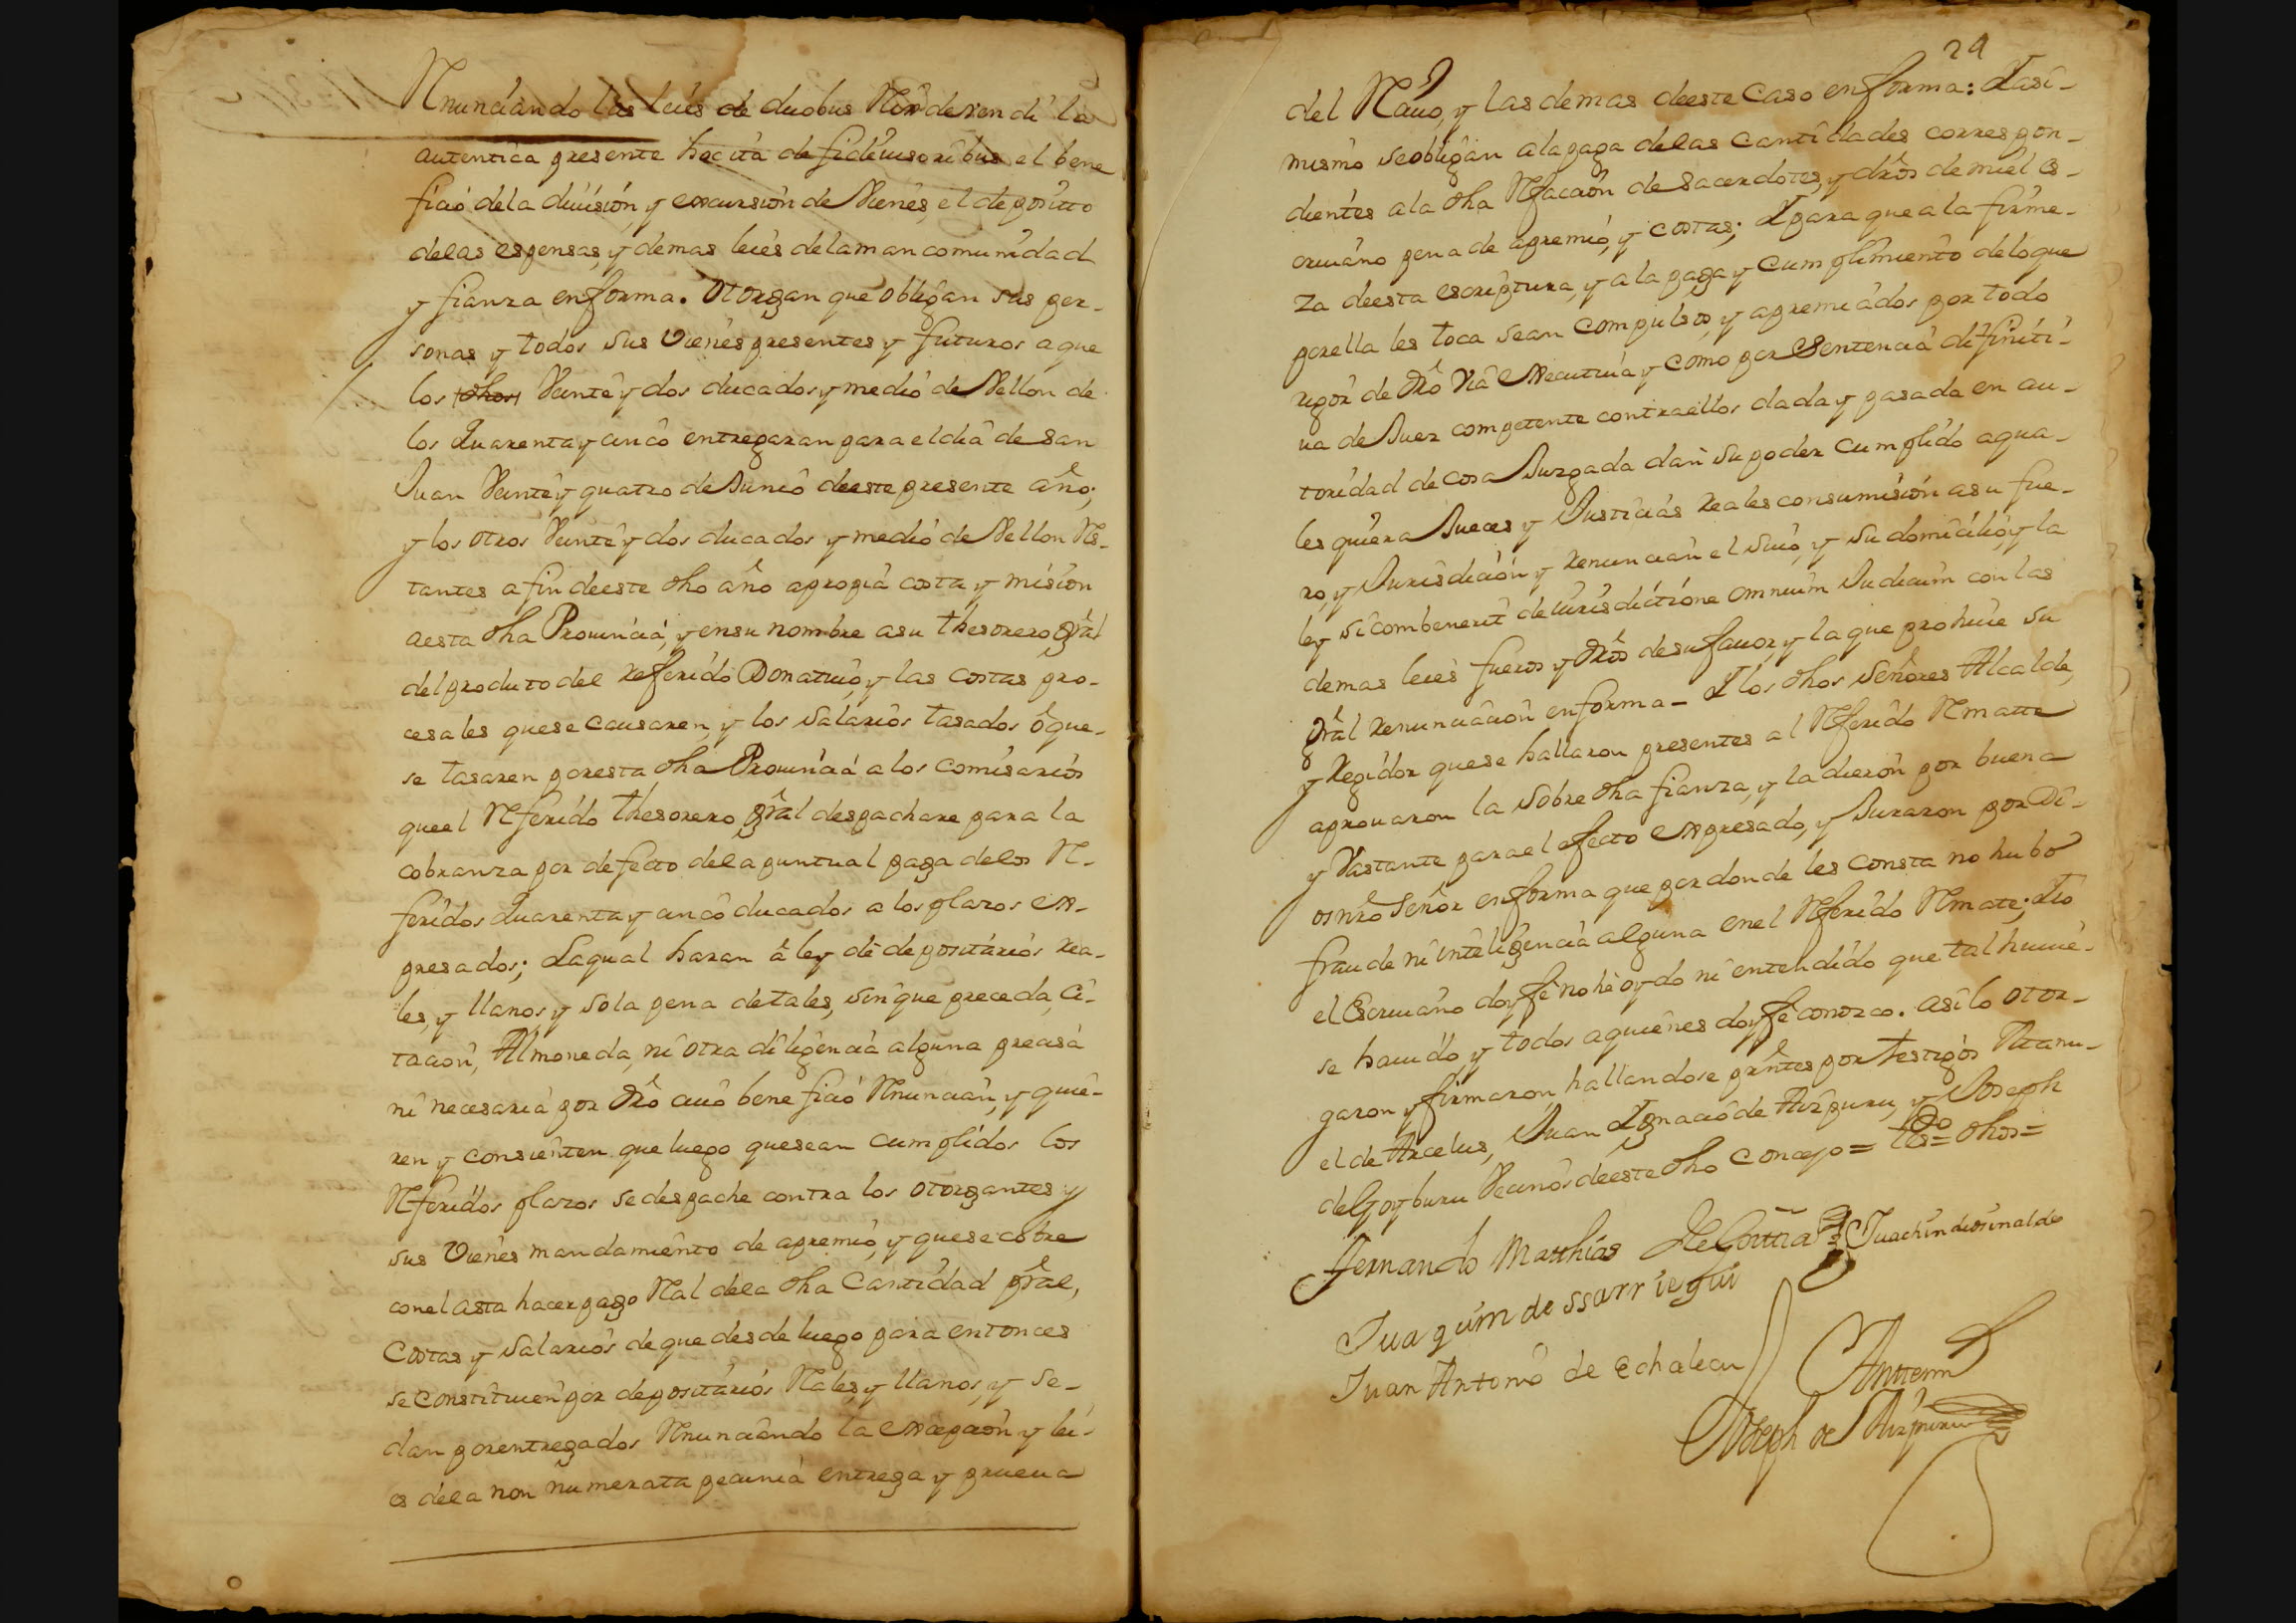 Rnunciando las leies de duobus Rex devendi la
autentica presente hocita de fideiusoribus el bene
ficio dela diuision, y excursion de Vienes, el deposito
delas espensas, y demas leies delamancomunidad
y fianza enforma. Otorgan que obligan sus per-
sonas y todos sus Vienes presentes y futuros a que
los dhos Veinte y dos ducados y medio de Vellon de
los Quarenta y cinco entregaran para el dia de San
Juan Veinte y quatro de Junio deeste presente año;
y los otros Veinte y dos ducados y medio de Vellon Rs-
tantes a fin deeste dho año apropia costa y mision
aesta dha Prouincia, y ensu nombre asu thesorero gral
del produto del referido Donatiuo, y las costas pro-
cesales quese causaren, y los salarios tasados ô que-
se tasaren poresta dha Prouincia a los comisarios
queel Rferido thesorero gral despachare para la
cobranza por defecto dela puntual paga delos R-
feridos Quarenta y cinco ducados a los plazos ex-
presados; Laqual haran â ley de depositarios rea-
les, y llanos, y sola pena detales, sinque preceda, ci-
tacion, Almoneda, ni otra diligencia alguna precisa
ni necesaria por dro cuio beneficio Rnuncian, y quie-
ren y consienten que luego quesean cumplidos los
Rferidos plazos sedespache contra los otorgantes y
sus Vienes mandamiento de apremio, y quese cobre
conel asta hacer pago Ral dela dha Cantidad pral,
Costas y salarios de que desde luego para entonces
se constituien por depositarios Rales, y llanos, y se-
dan porentregados Rnunciando la excepcion y lei-
es dela non numerata pecunia entrega y prueua
24
del Rciuo, y las demas deeste Caso enforma: Y asi-
mismo seobligan alapaga delas Cantidades correspon-
dientes ala dha Rfaccion de Sacerdotes, y dros de miel es-
criuano pena de apremio, y costas; Y para que a la firme-
za deesta escriptura, y a la paga y cumplimiento deloque
porella les toca sean compulsos, y apremiados por todo
rigor de dro Via executiua y como por Sentencia difiniti-
ua de Juez competente contraellos dada y pasada en au-
toridad de cosa Juzgada dan su poder cumplido aqua-
les quiera Jueces y Justicias reales consumision asu fue-
ro, y Jurisdicion y renuncian el suio, y su domicilio, y la
ley sicombenerit deiurisdictione omnium Judicum con las
demas leies fueros y dros desufauor, y la que prohiuie su
gral renunciacion enforma- Y los dhos Señores Alcalde,
y Regidor quese hallaron presentes al Rferido Rmatte
aprouaron la sobre dha fianza, y la dieron por buena
y Vastante para el efecto expresado, y Juraron por Di-
os nro Señor enforma que por donde les consta no hubo
fraude ni inteligencia alguna enel Rferido Rmate; Y io
el Escriuano doy fe no hè oydo ni entendido que tal huuie-
se hauido, y todos aquienes doy fe conozco. asi lo otor-
garon y firmaron, hallandose pntes por testigos Manu-
el de Arcelus, Juan Ygnacio de Aizpuru, y Joseph
de Goyburu Vecinos deeste dho concejo = tdo = dhos =
Fernando Matthias De Goitia Juachin diosinalde
Juaquim de ssarriegui
Juan Antonio de Echalecu
Anttemi
Joseph de Aizpuru